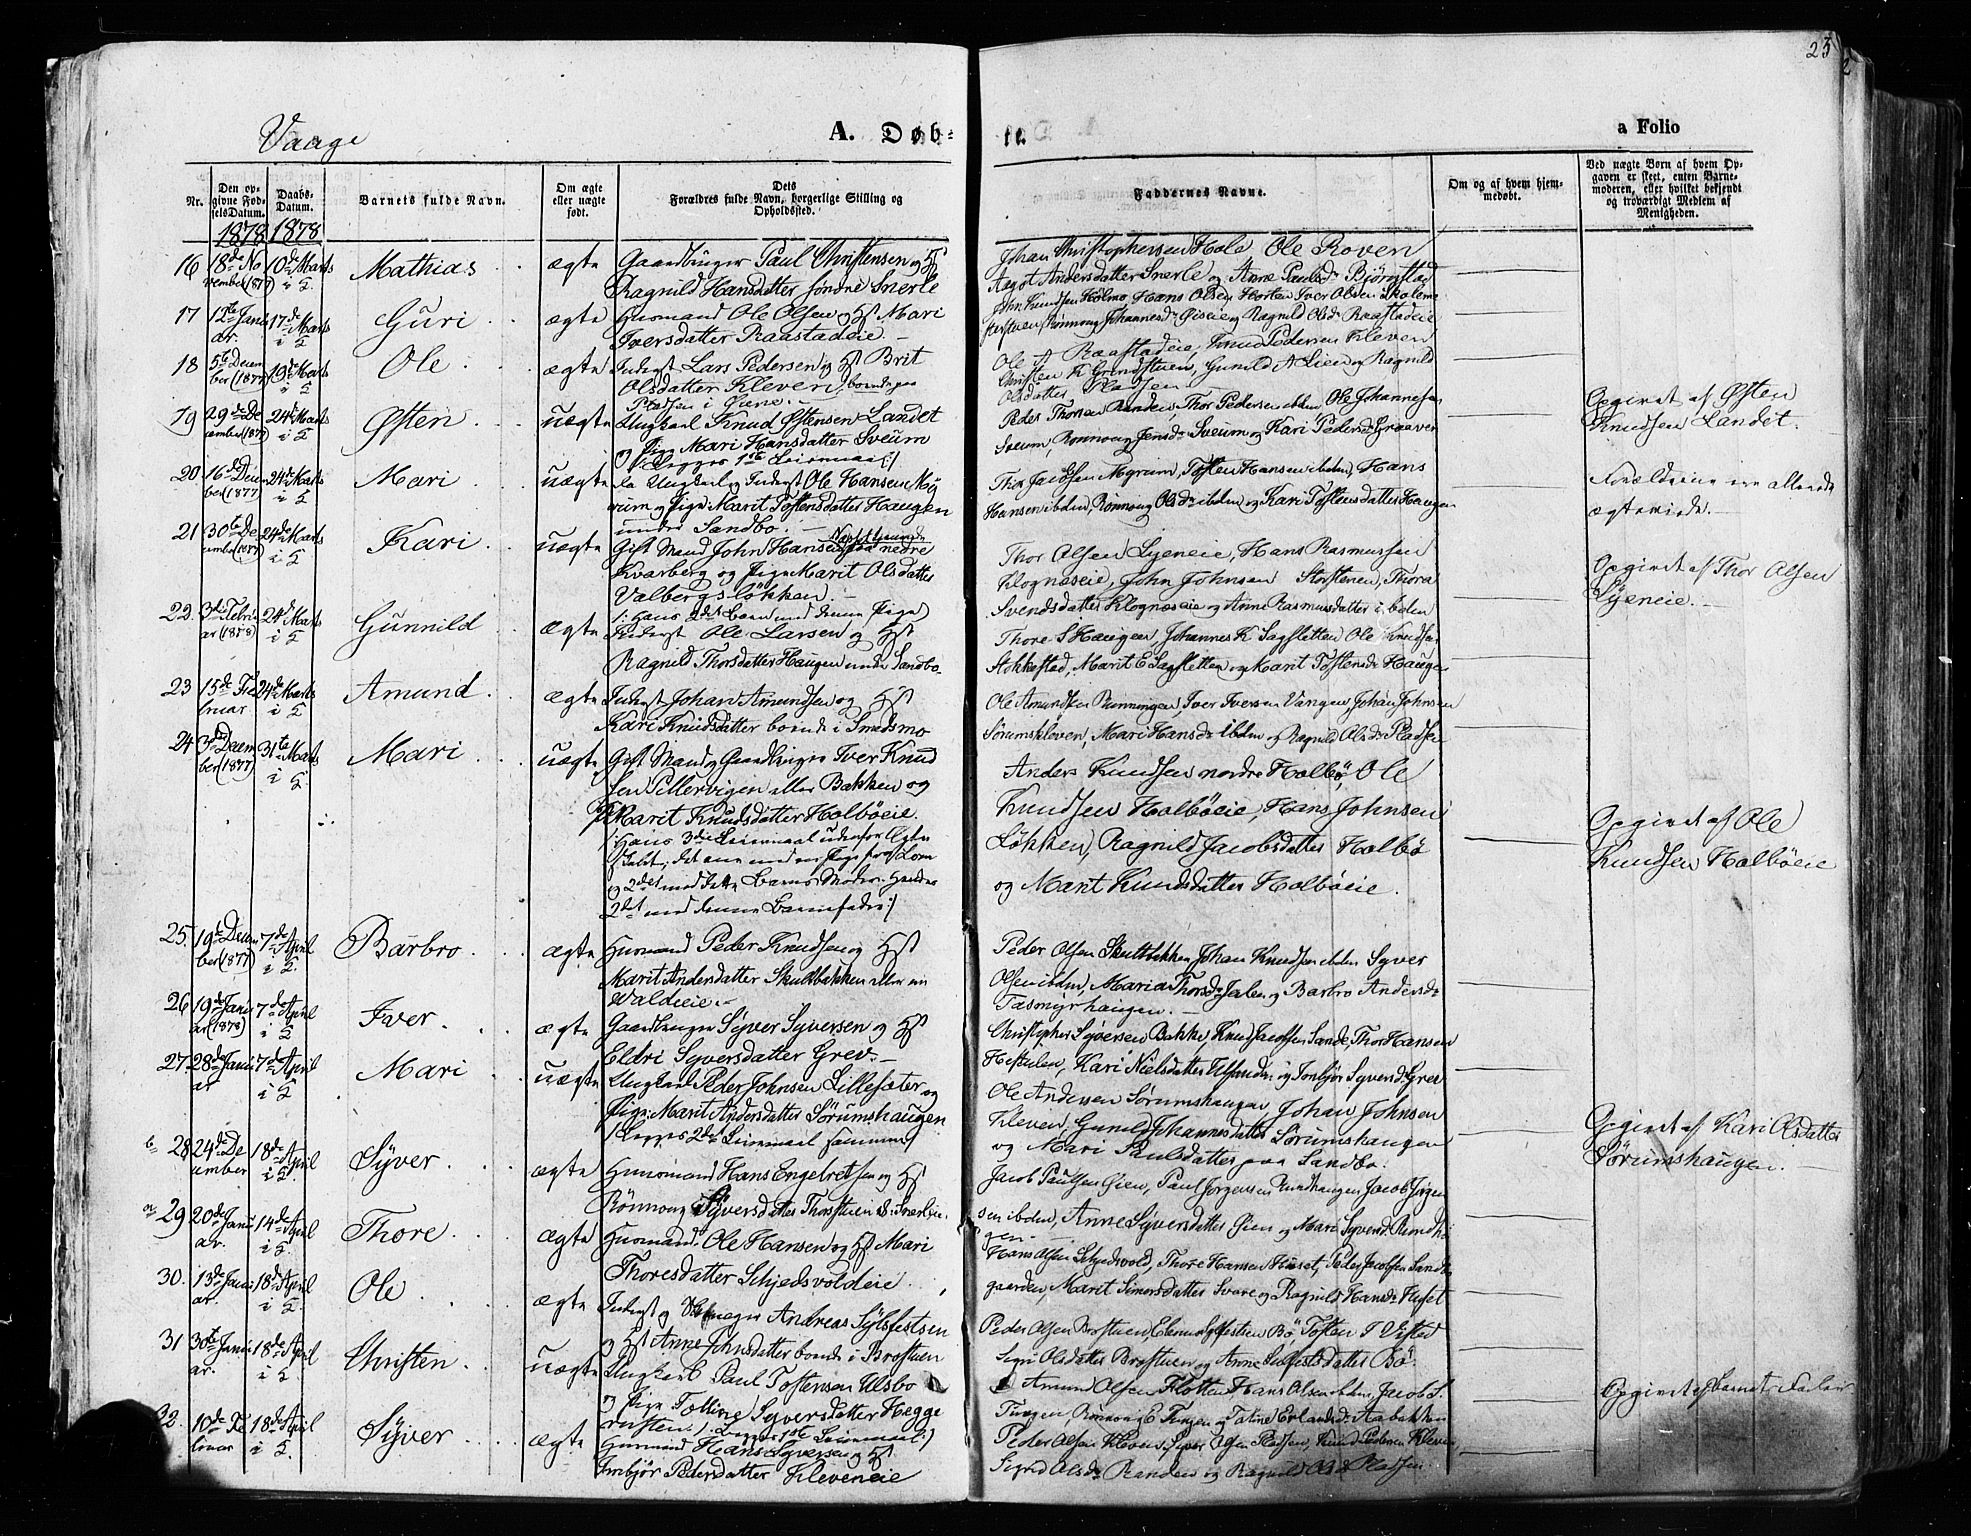 23
Vaage
A. Døb-
te.
a Folio
Nr.
Den op-
givne Fød-
selsDatum.
Daabs-
Datum.
Barnets fulde Navn.
Om ægte
eller uægte
født.
Dets
Forældres fulde Navn, borgerlige Stilling og
Opholdssted.
Faddernes Navne.
Om og af hvem hjem-
medøbt.
Ved uægte Børn af hvem Op-
gaven er skeet, enten Barne-
moderen, eller hvilket bekjendt
og troværdigt Medlem af
Menigheden.
1878 1878
16 18de No 10de Marts Mathias ægte Gaardbruger Paul Christensen og Hst
vember (1877) i K
Ragnild Hansdatter søndre Snerle
Johan Christophersen Hole Ole Roven
Aagot Andersdatter Snerle og Anne Paulsd. Bjørgstad
17 12te Janu 17de Marts Guri ægte Husmand Ole Olsen og Hst Mari
ar. i K
Iversdatter Raastadeie
John Knudsen Holmo Hans Olsen Horten Iver Olsen
Rønnoug Johannesd. og Ragnild Olsd. Raastadeie
18 5te Decem 19de Marts Ole ægte Inderst Lars Pedersen og Hst Brit
ber (1877) i K
Olsdatter Kleven, boende paa
Pladsen i
Ole A Raastadeie, Knud Pedersen Kleven
Christen K Grindstuen, Gunild A Lien og Ragnild
Olsdatter Pladsen
19 29de De 24de Marts Østen uægte Ungkarl Knud Østensen Landet
cember (1877) i K
og Pige Mari Hansdatter Sveum
/: Begges 1ste Leiermaal :/
Peder Thorsen Randen Thor Pedersen ibden Ole Johannesen
Sveum, Rønnoug Jensd. Sveum og Kari Pedersd. Graaver
Opgivet af Østen
Knudsen Landet.
20 16de Decem 24de Marts Mari uægte Ungkarl og Inderst Ole Hansen Myg
ber (1877) i K
rum og Pige Marit Tostensdatter Haugen
under Sandbo.
Thor Jacobsen Mygrum, Tosten Hansen ibden, Hans
Hansen ibden, Rønnoug Olsd. ibden og Kari Tostensdatter Haugen
Forældrene ere allerede
ægteviede.
21 30te De 24de Marts Kari uægte Gift Mand John Hansen paa nedre
cember (1877) i K
Kvarberg og Pige Marit Olsdatter
Valbergsløkken.
/: Hans 2det Barn med denne Pige
Thor Olsen Lyeneie, Hans Rasmussen
Klognæseie, John Johnsen Storstenen, Thora
Svendsdatter Klognæseie og Anne Rasmusdatter ibden
Opgivet af Thor Olsen
Lyeneie.
22. 3die Febru 24de Marts Gunnild ægte Inderst Ole Larsen og Hst
ar (1878) i K
Ragnild Thorsdatter Haugen under Sandbo
Thore S Haugen, Johannes K Sagfletten Ole Knudsen
Stokkestad, Marit E Sagfletten og Marit Tostensd. Haugen
23 15de Fe 24de Marts Amund ægte Inderst Johan Amundsen og Hst
bruar i K
Kari Knudsdatter boende i Smedsmo
Ole Amundsen Runningen, Iver Iversen Vangen, Johan Johnsen
Sørumskleven, Mari Hansd. ibden og Ragnild Olsd. Pladsen
24 3die Decem 31te Marts Mari uægte Gift Mand og Gaardbruger Iver Knud
ber (1877) i K
sen Sillervigen eller Bakken og
Pige Marit Knudsdatter Holbøeie.
/: Hans 3die Leiermaal udenfor Ægte
skabet, det ene med en Pige fra Lom
og 2det med dette Barns Moder. Hendes
2det med denne Barnefader :/
Anders Knudsen nordre Holbø, Ole
Knudsen Holbøeie, Hans Johnsen
Løkken, Ragnild Jacobsdatter Holbø
og Marit Knudsdatter Holbøeie.
Opgivet af Ole
Knudsen Holbøeie
25. 19de Decem 7de April Barbro ægte Husmand Peder Knudsen og Hst
ber (1877) i K
Marit Andersdatter Skultbakken eller
Valdeie.
Peder Olsen Skultbakken Johan Knudsen ibden Syver
Olsen ibden, Maria Thorsd. og Barbro Andersd.
Tasmyrhaugen.
26 19de Janu 7de April Iver ægte Gaardbruger Syver Syversen og Hst
ar (1878) i K
Eldri Syversdatter Grev.
Christopher Syversen Bakke, Knud Jacobsen Sande Thor Hansen
Hestulen, Kari Nielsdatter Ulfanden og Imbjør Syversd. Grev
27 28de Janu 7de April Mari uægte Ungkarl Peder Johnsen Lillesæter og
ar i K
Pige Marit Andersdatter Sørumshaugen
/: Begges 2det Leiermaal sammen :/
Ole Andersen Sørumshaugen, Johan Johnsen
Kleven, Gunild Johannesdatter Sørumshaugen
og Mari Paulsdatter paa Sandbo.
Opgivet af Kari Olsdatter
Sørumshaugen.
b 28 24de De 18de April Syver ægte Husmand Hans Engebretsen og Hst
cember i K
Rønnoug Syversdatter Thorstuen S. Snerleie.
Jacob Paulsen Øien, Paul Jørgensen Rundhaugen Jacob Jørgen
sen ibden, Anne Syversdatter Øien og Mari Syversd. Rundhau
gen
a 29 20de Janu 14de April Thore ægte Husmand Ole Hansen og Hst Mari
ar. i K
Thoresdatter Schjedsvoldeie
Hans Olsen Schjedsvold, Thore Hansen Huset, Peder Jacobsen Sandbo
gaarden, Marit Simonsdatter Svare og Ragnild Hansd. Huset
30. 13de Janu 18de April Ole ægte Inderst og Andreas Sylfestsen
ar. i K
og Hst Anne Johnsdatter boende i Brostuen
Peder Olsen Brostuen, Sylfestsen Bø, Tosten I Visted
Sigri Olsdatter Brostuen og Anne Sylfestsdatter Bø.
31 30te Janu 18de April Christen uægte Ungkarl Paul Tostensen Ulsbo
ar. i K
og Pige Tolline Syversdatter Hegge
/: Begges 1ste Leiermaal :/
Amund Olsen Flotten Hans Olsen ibden, Jacob S.
Tungen, Rønnoug E Tungen og Taline Erlandsd. Aabakken
Opgivet af Barnets Fader
32. 10de Fe 18de April Syver ægte Husmand Hans Syversen og Hst
bruar i K
Imbjør Pedersdatter Kleveneie
Peder Olsen Kleven, Syver Olsen Pladsen, Knud Pedersen Kleven,
Sigrid Olsd. Randen og Ragnild Olsd. Pladsen.